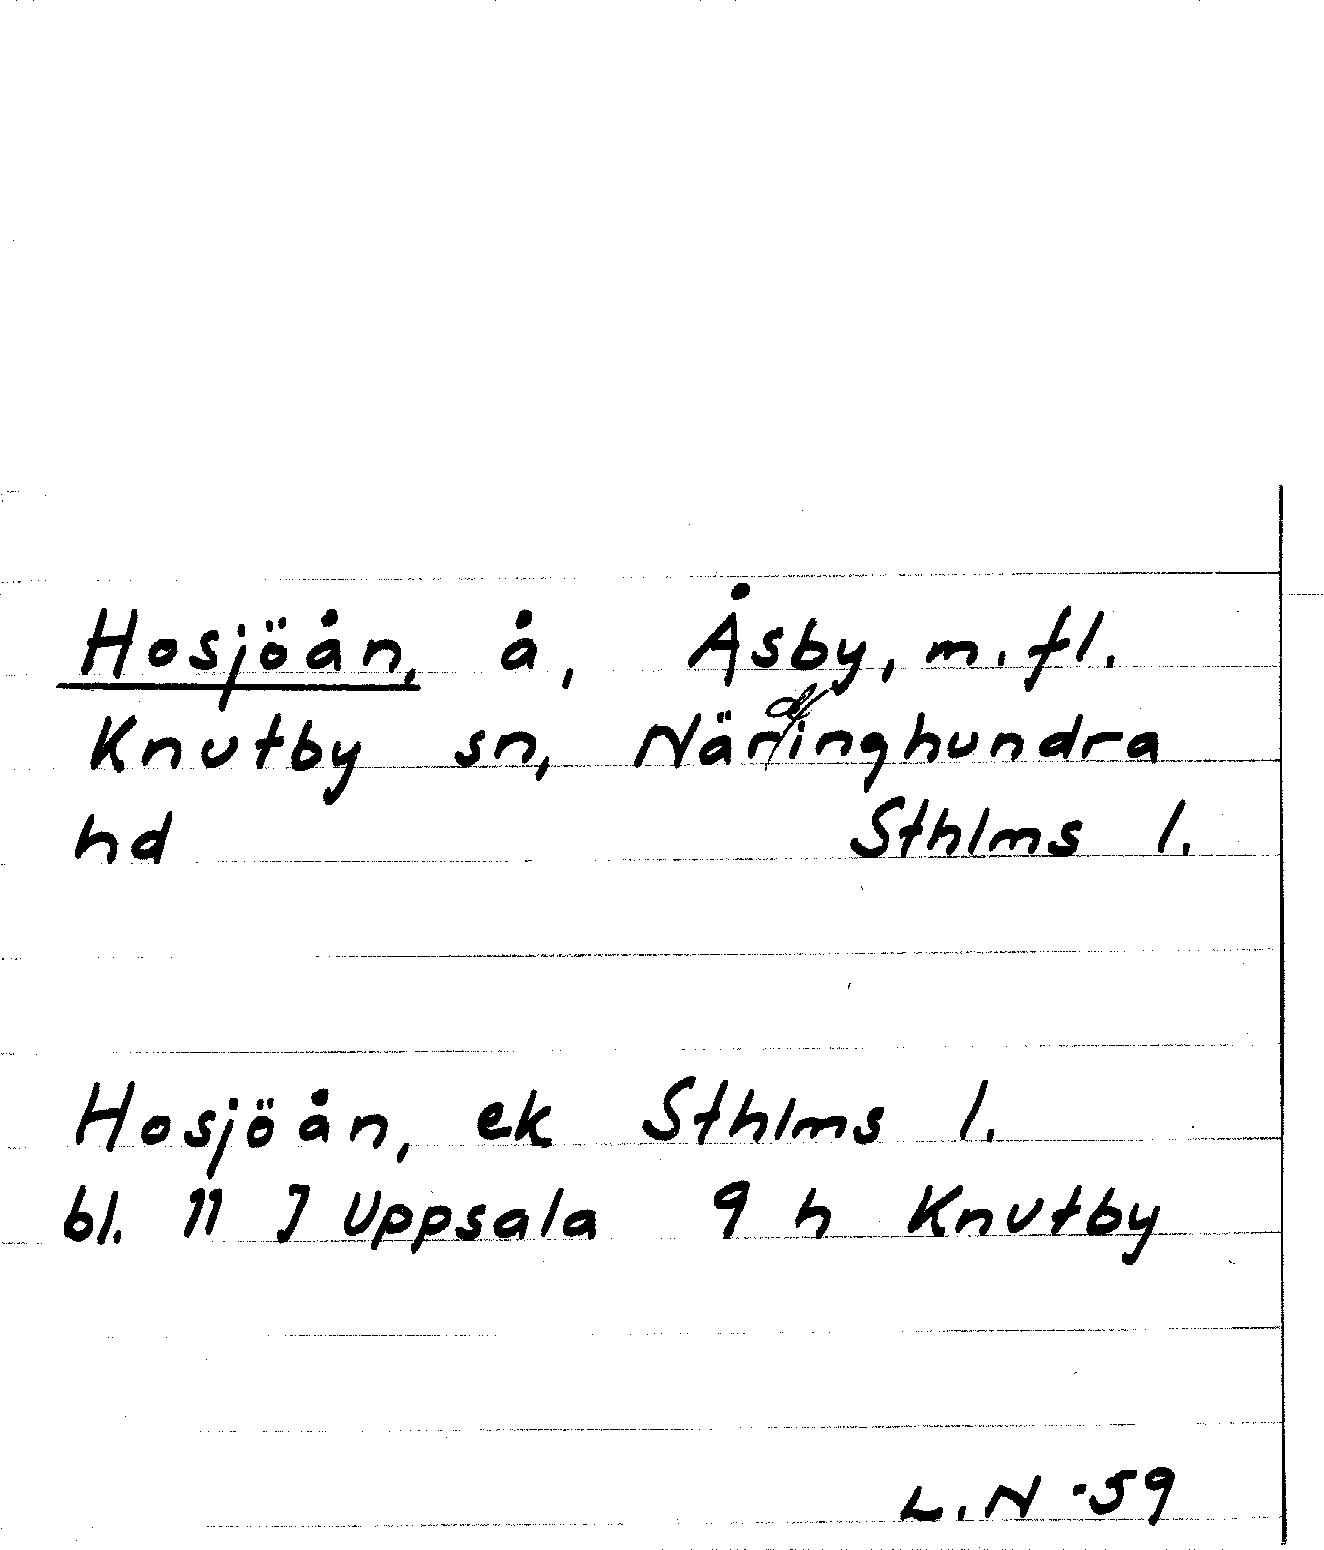 Hosjöån, å, Åsby, m.fl.
Knutby sn, Närdinghundra
hd Sthlms l.
Hosjöån, ek Sthlms l.
bl. 11 J Uppsala 9 h Knutby
L.N -59